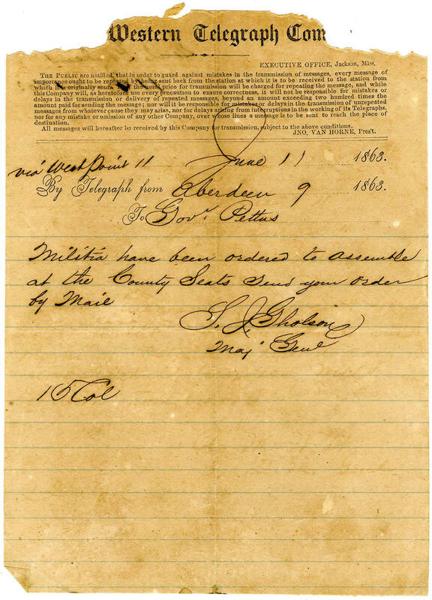 Western Telegraph Com
EXECUTIVE OFFICE, Jackson, Miss.
THE PUBLIC are notified, that in order to guard against mistakes in the transmission of messages, every message of
importance ought to be repeated by being sent back from the station at which it is to be received to the station from
which it is originally sent. the price for transmission will be charged for repeating the message, and while
this Company will, as heretofore use every precaution to ensure correctness, it will not be responsible for mistakes or
delays in the transmission or delivery of repeated messages, beyond an amount exceeding two hundred times the
amount paid for sending the message; nor will it be responsible for mistakes or delays in the transmission of unrepeated
messages from whatever cause they may arise, nor for delays arising from interruptions in the working of its Telegraphs,
nor for any mistake or omission of any other Company, over whose lines a message is to be sent to reach the place of
destination.
All messages will hereafter be received by this Company for transmission, subject to the above conditions.
JNO. VAN HORNE, Pres't.
via West Point 11 June 11 1863.
By Telegraph from Aberdeen 9 1863.
To Govr. Pettus
Militia have been ordered to assemble
at the County Seats Send your order
by Mail
S. J. Gholson
Maj Genl
15 Col